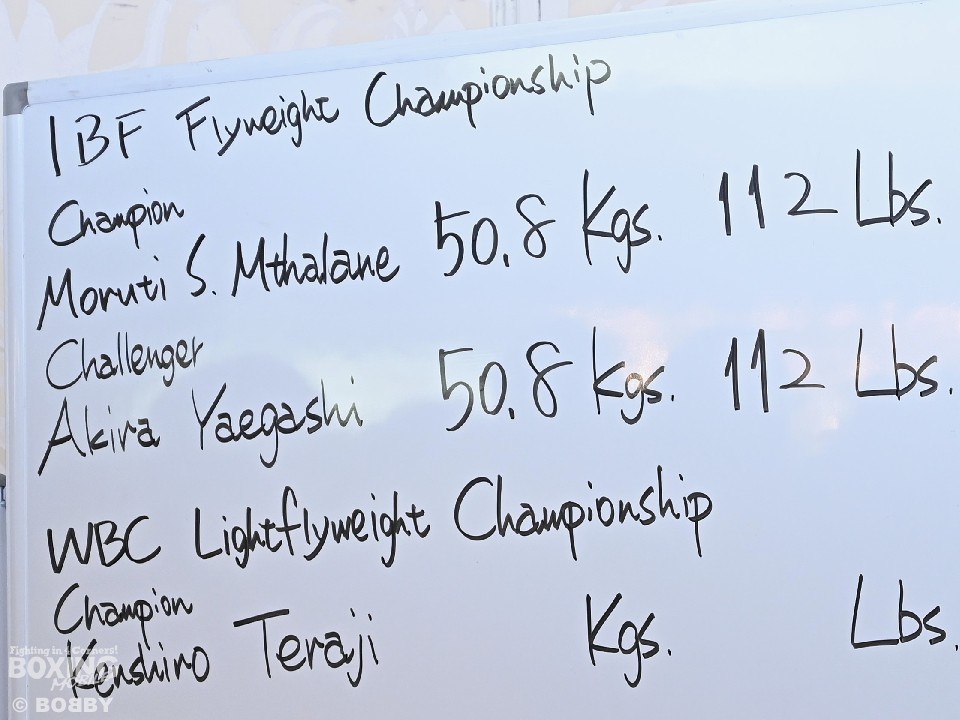 IBF Flyweight Championship
Champion
Moruti S. Mthalane 50.8 Kgs. 112 Lbs.
Challenger
Akira Yaegashi 50.8 Kgs. 112 Lbs.
WBC Lightflyweight Championship
Champion
Kenshiro Teraji Kgs. Lbs.
Fighting in 4 Corners!
BOXING
Mobile
© BOBBY